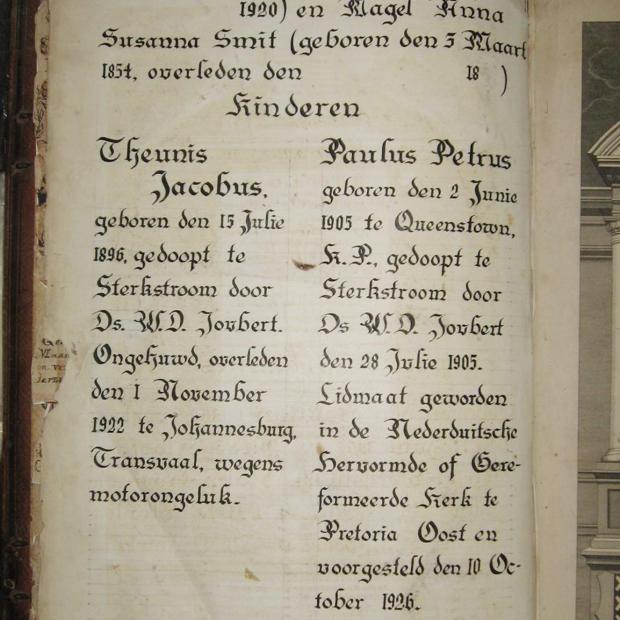 1920) en Nagel Anna
Susanna Smit (geboren den 3 Maart
1854, overleden den 18 )
Kinderen
Theunis
Jacobus.
geboren den 15 Julie
1896, gedoopt te
Sterkstroom door
Ds. W.D. Joubert.
Ongehuwd, overleden
den 1 November
1922 te Johannesburg,
Transvaal, wegens
motorongeluk.
Paulus Petrus
geboren den 2 Junie
1905 te Queenstown,
K.P., gedoopt te
Sterkstroom door
Ds W.D. Joubert
den 28 Julie 1905.
Lidmaat geworden
in de Nederduitsche
Hervormde of Gere-
formeerde Kerk te
Pretoria Oost en
voorgesteld den 10 Oc-
tober 1926.